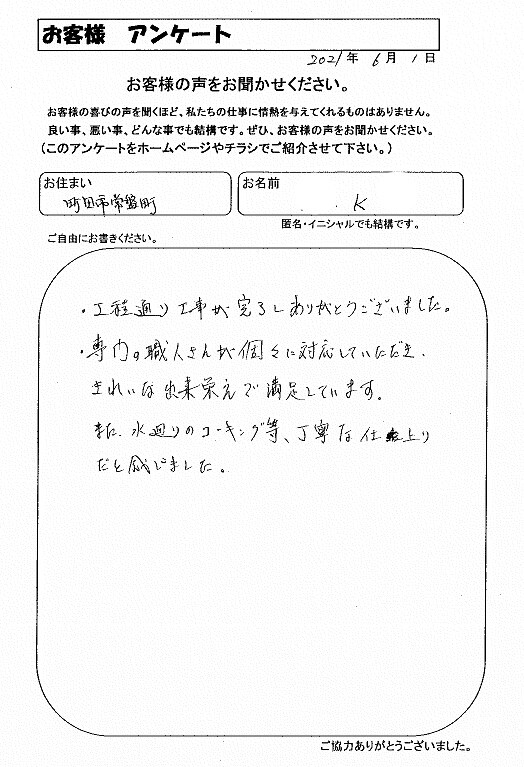 お客様 アンケート
2021年 6月 1日
お客様の声をお聞かせください。
お客様の喜びの声を聞くほど、私たちの仕事に情熱を与えてくれるものはありません。
良い事、悪い事、どんな事でも結構です。ぜひ、お客様の声をお聞かせください。
(このアンケートをホームページやチラシでご紹介させて下さい。)
お住まい
町田市常盤町
お名前
K
匿名・イニシャルでも結構です。
ご自由にお書きください。
・工程通り工事が完了しありがとうございました。
・専門の職人さんが個々に対応していただき、
きれいな出来栄えで満足しています。
また、水廻りのコーキング等、丁寧な仕上り
だと感じました。
ご協力ありがとうございました。